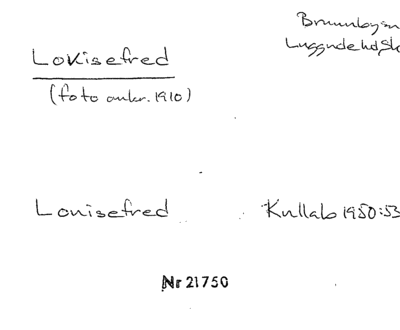 Brunnby sn
Luggude hd Sk
Lovisefred
(foto omkr. 1910)
Louisefred
Kullab 1950:53
Nr 21750